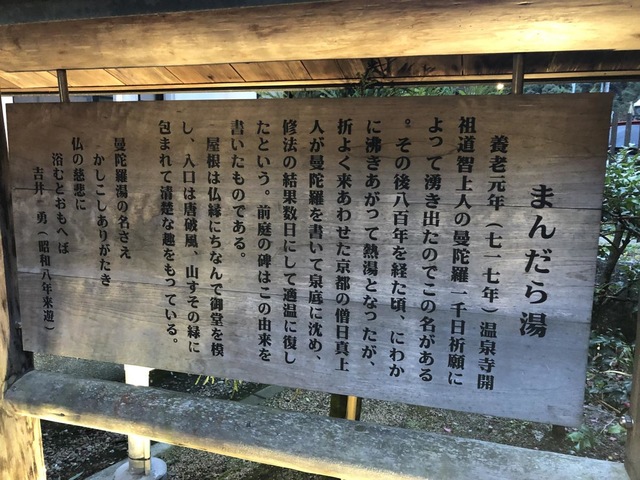 まんだら湯
養老元年（七一七年）温泉寺開
祖道智上人の曼陀羅一千日祈願に
よって湧き出たのでこの名がある
。その後八百年を経た頃、にわか
に沸きあがって熱湯となったが、
折よく来あわせた京都の僧日真上
人が曼陀羅を書いて泉底に沈め、
修法の結果数日にして適温に復し
たという。前庭の碑はこの由来を
書いたものである。
屋根は仏縁にちなんで御堂を模
し、入口は唐破風、山すその緑に
包まれて清楚な趣をもっている。
曼陀羅湯の名さえ
かしこしありがたき
仏の慈悲に
浴むとおもへば
吉井 勇（昭和八年来遊）